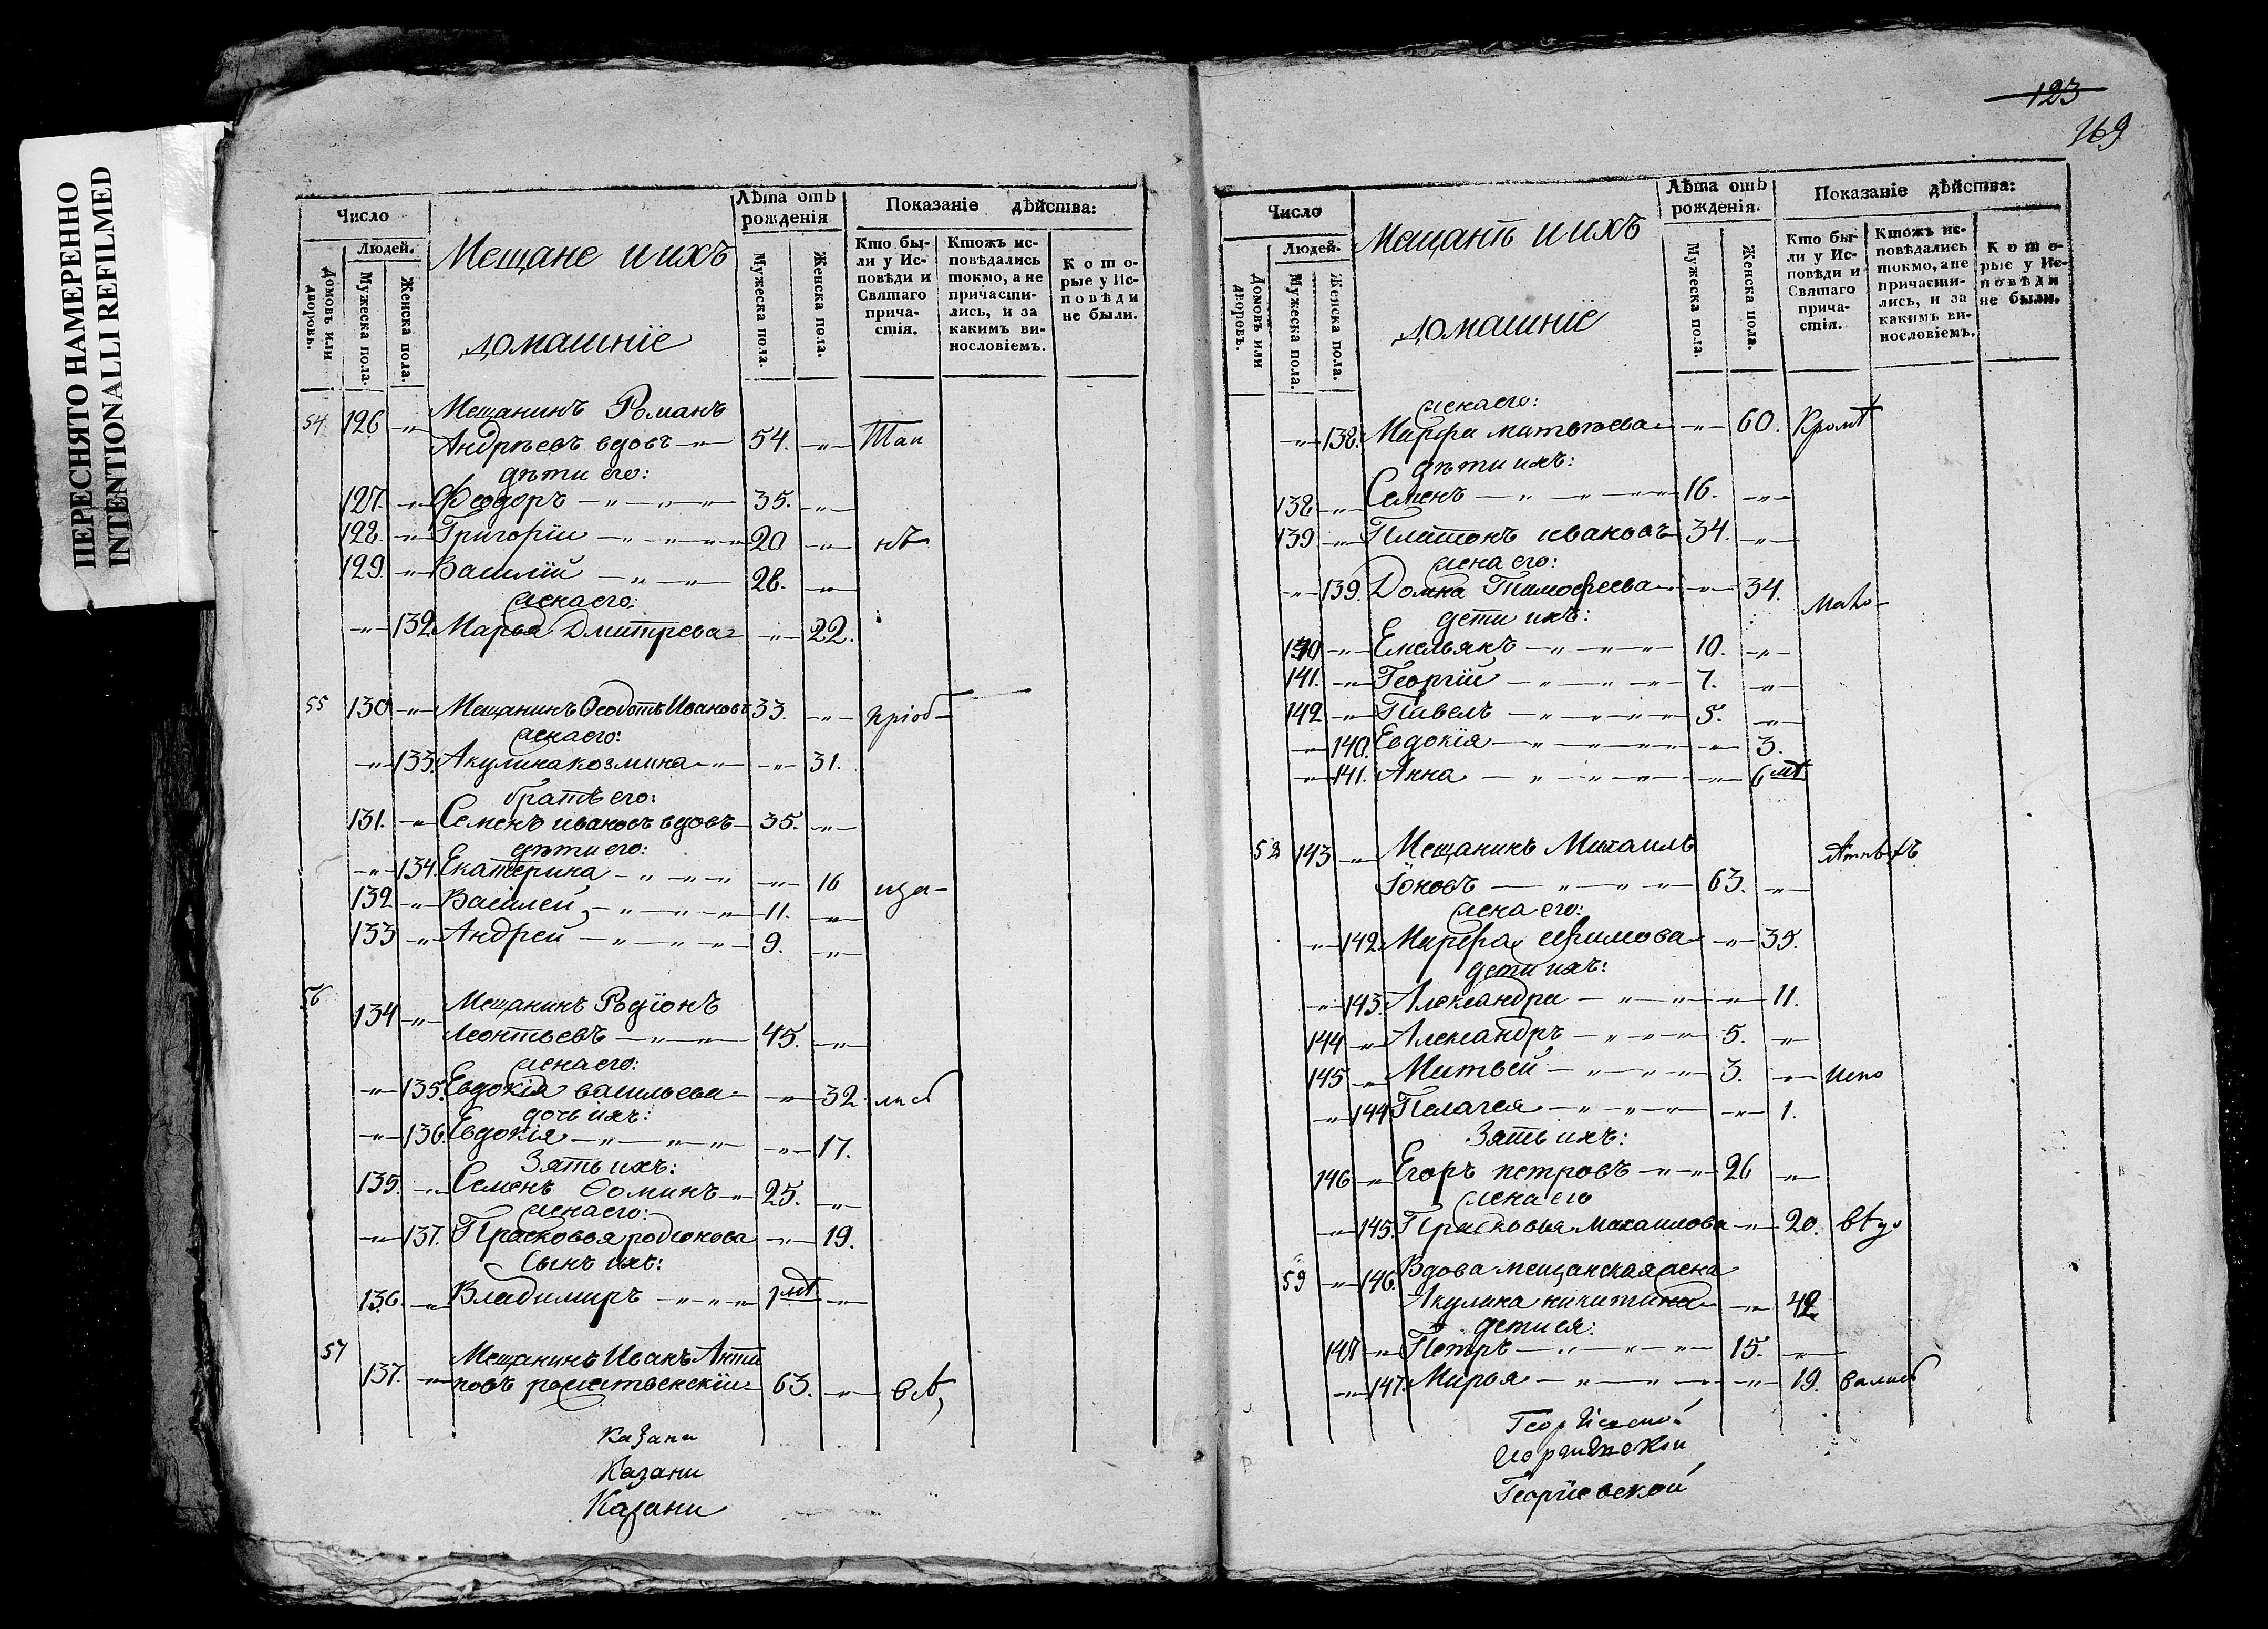 ПЕРЕСНЯТО НАМЕРЕННО
INTENTIONALLI REFILMED
Число
Людей.
Домовъ или дворовъ.
Мужеска пола.
Женска пола.
Мещане и ихъ
домашніе
Лѣта отъ рожденія
Мужеска пола.
Женска пола.
Показаніе дѣйства:
Кто бы-
ли у Ис-
повѣди и
Святаго
прича-
стія.
Ктожъ ис-
повѣдались
токмо, а не
причасти-
лись, и за
какимъ ви-
нословіемъ.
Кото-
рые у Ис-
повѣди
не были.
54 126 -"- Мещанинъ Романъ
Андрѣевъ вдовъ -"- 54. -"-
дѣти его:
127. -"- Феодоръ -"-"- 35. -"-
128. -"- Григоріи -"-"- 20 -"- нѣ
129. -"- Василій -"-"- 28. -"-
жена его:
-"- 132 Марья Дмитрева -"- 22.
55 130 -"- Мещанинъ Ѳеодотъ Ивановъ 33. -"- пріоб-
жена его:
-"- 133. Акулина козмина -"- -"- 31.
братъ его:
131. -"- Семенъ ивановъ вдовъ 35. -"-
дѣти его:
-"- 134. Екатерина -"-"- -"- 16 ща-
132 -"- Василей -"-"- 11. -"-
133 -"- Андрей -"-"- 9. -"-
56 134 -"- Мещанинъ Родіонъ
Леонтьевъ -"- 45. -"-
жена его:
-"- 135. Евдокія васильева -"- 32. лись
дочь ихъ:
-"- 136. Евдокія -"-"- -"- 17.
Зять ихъ:
135. -"- Семенъ Ѳоминъ -"- 25. -"-
жена его:
-"- 137. Прасковья родіонова -"- 19.
Сынъ ихъ:
136. -"- Владимиръ -"-"- 1 мѣ -"-
57 137. -"- Мещанинъ Иванъ Анти
повъ 63. -"- въ
Казани
Казани
Казани
123
169
Число
Людей.
Домовъ или дворовъ.
Мужеска пола.
Женска пола.
Мещанъ и ихъ
домашніе
Лѣта отъ рожденія.
Мужеска пола.
Женска пола.
Показаніе дѣйства:
Кто бы-
ли у Ис-
повѣди и
Святаго
прича-
стія.
Ктожъ ис-
повѣдались
токмо, а не
причасти-
лись, и за
какимъ ви-
нословіемъ.
Кото-
рые у Ис-
повѣди
не были.
жена его:
-"- 138. Марфа матвѣева -"- 60. Кромѣ
дѣти ихъ:
138 -"- Семенъ -"-"- 16. -"-
139 -"- Платонъ ивановъ 34. -"-
жена его:
-"- 139. Домна Тимофеева -"- 34. мало-
дети ихъ:
140 -"- Емельянъ -"-"- 10. -"-
141. -"- Георгій -"-"- 7. -"-
142 -"- Павелъ -"-"- 5. -"-
-"- 140. Евдокія -"-"- -"- 3.
-"- 141. Анна -"-"- -"- 6 мѣ
58 143 -"- Мещанинъ Михаилъ
Іоновъ -"-"- 63. -"-
жена его:
-"- 142. Марфа ефимова -"- 35.
дети ихъ:
-"- 143. Александра -"-"- -"- 11.
144 -"- Александръ -"-"- 5. -"-
145 -"- Матвей -"-"- 3. -"- испо
-"- 144 Пелагея -"-"- -"- 1.
Зять ихъ:
146 -"- Егоръ петровъ -"-"- 26 -"-
жена его
-"- 145. Прасковья Михаилова -"- 20.
59 -"- 146. Вдова мещанская жена
Акулина никитина -"- 42
дети ея:
147 -"- Петръ -"-"- 15. -"-
-"- 147. Марья -"-"- -"- 19. вались
Георгіевской